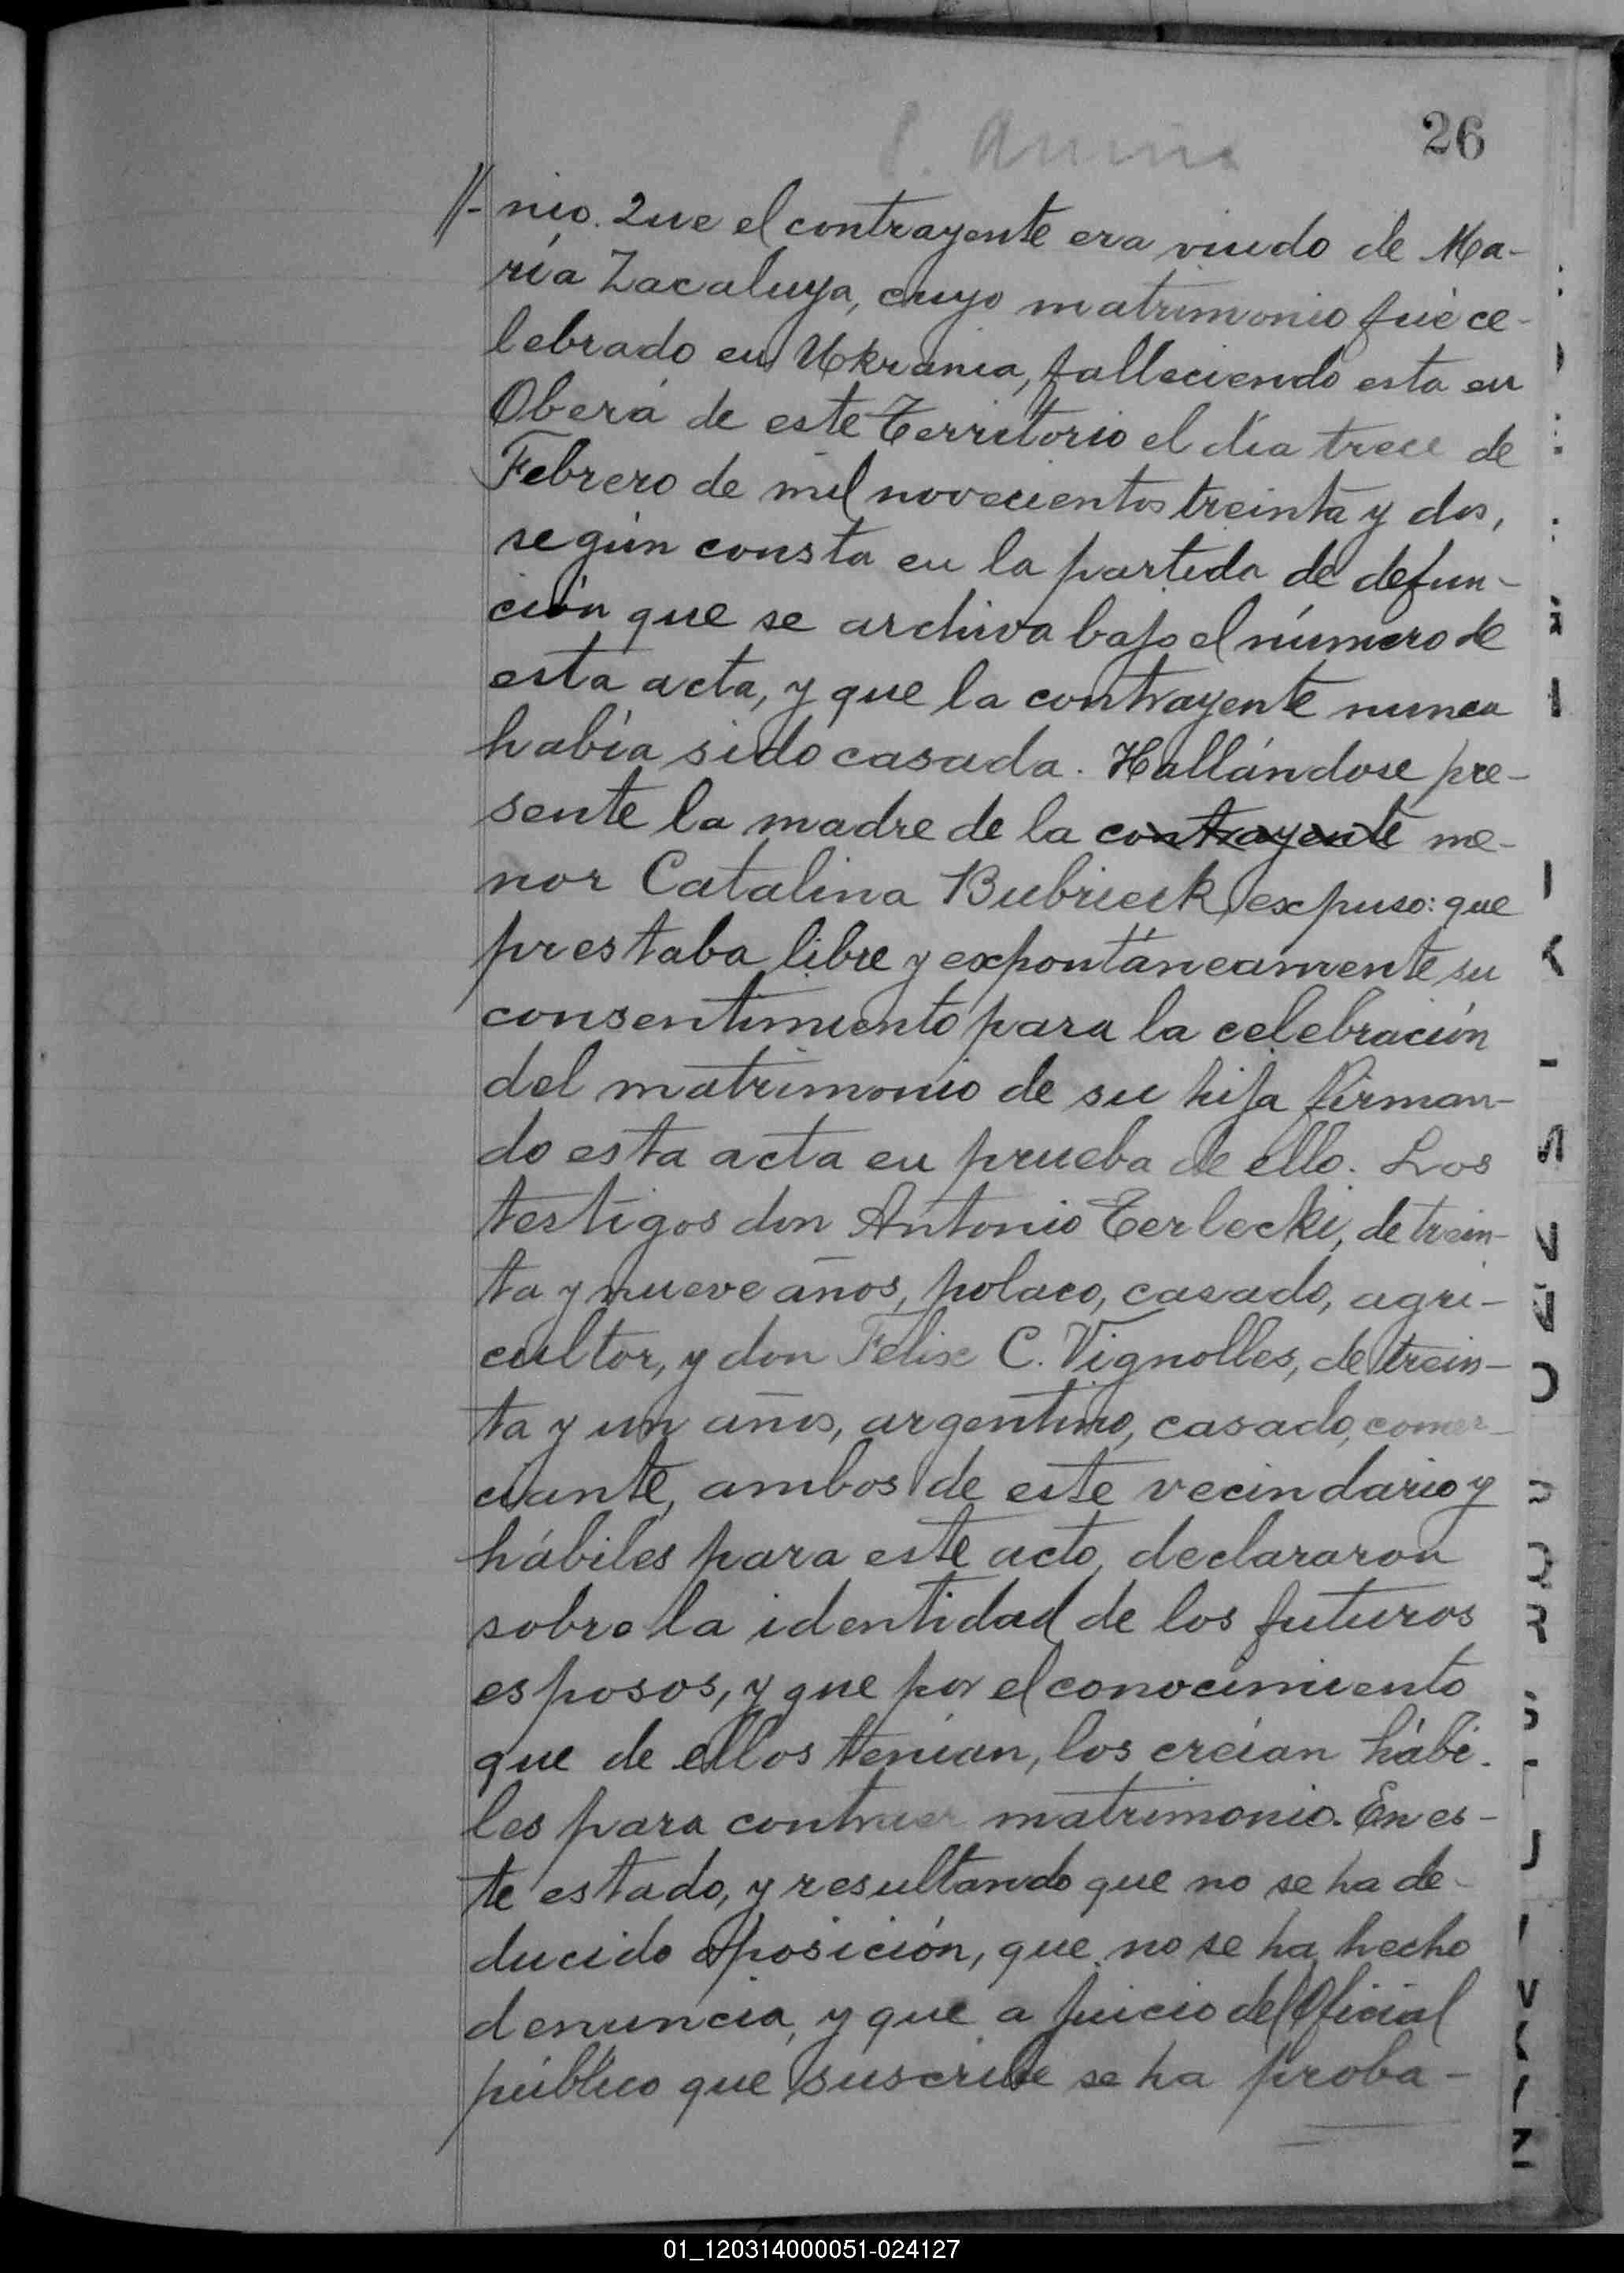 26
//- nio. Que el contrayente era viudo de Ma-
ría Zacaluya, cuyo matrimonio fué ce-
lebrado en Ukrania, falleciendo esta en
Oberá de este Territorio el día trece de
Febrero de mil novecientos treinta y dos,
según consta en la partida de defun-
ción que se archiva bajo el número de
esta acta, y que la contrayente nunca
había sido casada. Hallándose pre-
sente la madre de la contrayente me-
nor Catalina Bubrieck, expuso: que
prestaba libre y expontáneamente su
consentimiento para la celebración
del matrimonio de su hija firman-
do esta acta en prueba de ello. Los
testigos don Antonio Terlecki, de trein-
ta y nueve años, polaco, casado, agri-
cultor, y don Felix C. Vignolles, de trein-
ta y un años, argentino, casado, comer-
ciante, ambos de este vecindario y
hábiles para este acto, declararon
sobre la identidad de los futuros
esposos, y que por el conocimiento
que de ellos tenían, los creían hábi-
les para contraer matrimonio. En es-
te estado, y resultando que no se ha de-
ducido oposición, que no se ha hecho
denuncia, y que a juicio del Oficial
público que suscribe se ha proba-
01_120314000051-024127